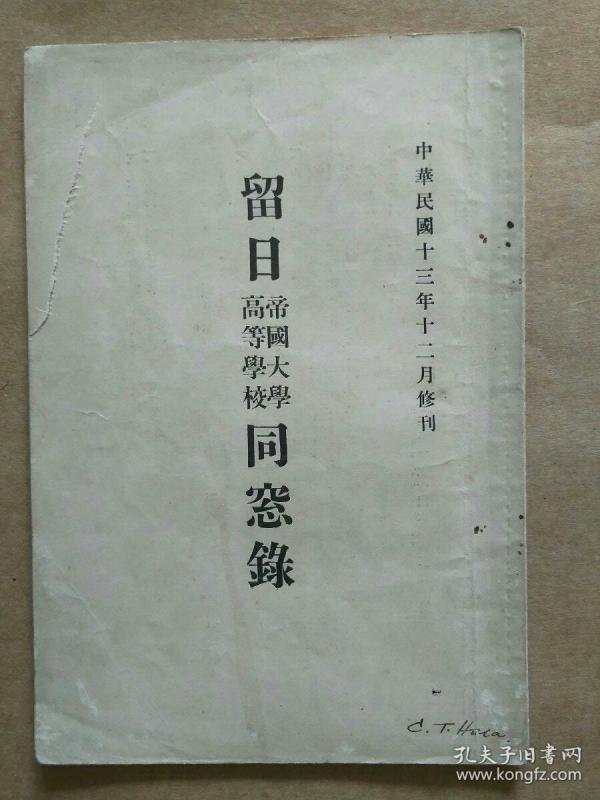 中華民國十三年十二月修刊
留日帝國大學高等學校同窓錄
C. T.
孔夫子旧書网
www.kongfz.com